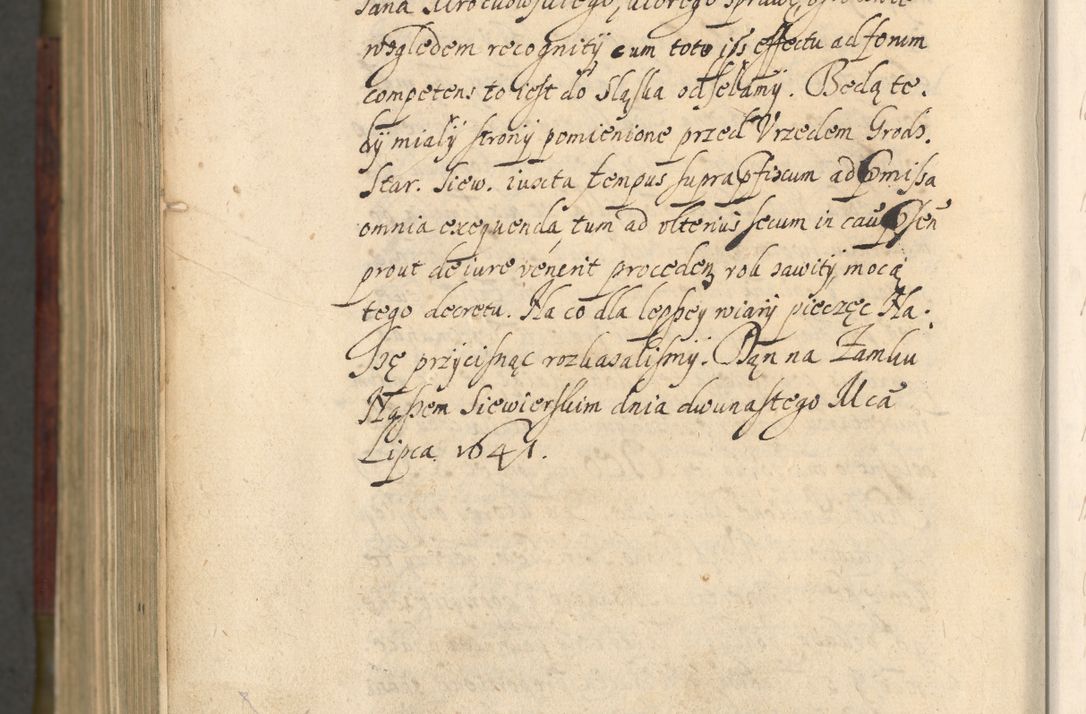 względem recognitÿ cum toto iss effectu ad forum
competens to iest do Sląska odsełamÿ. Będą te.
dÿ miałÿ stronÿ pomienione przed Vrzędem Grodz.
Star. Siew. iuxta tempus supra pfixum ad pmissa
omnia exequenda, tum ad vlterius secum in cau psen
prout de iure venerit proceden rok zawitÿ mocą
tego decretu. Na co dla lepszeÿ wiarÿ pieczęc Na.
szę przÿcisnąc rozkazalismÿ. Dan na Zamku
Naszem Siewierskim dnia dwunastego Mca
Lipca 1641.